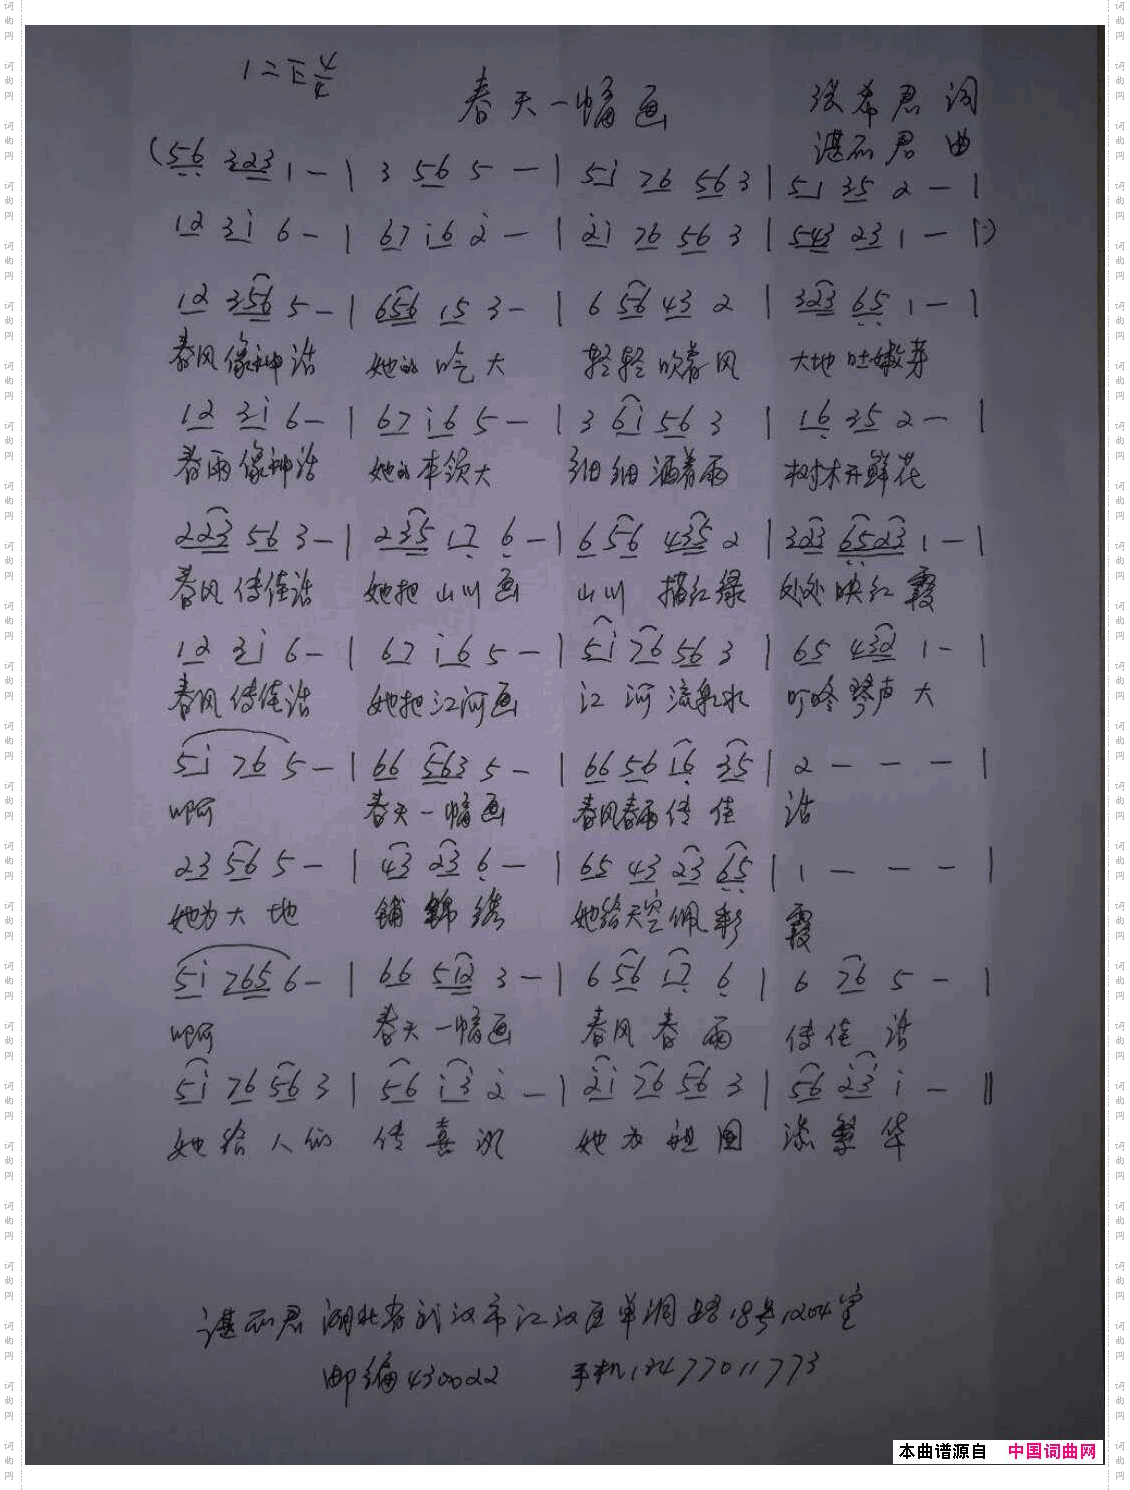 1=E 4/4
春天一幅画
张希君 词
谌丽君 曲
(56 323 1 - | 3 56 5 - | 5i 76 56 3 | 51 35 2 - |
12 3i 6 - | 67 i6 2 - | 2i 76 56 3 | 543 23 1 - |)
12 356 5 - | 656 15 3 - | 6 56 43 2 | 323 65 1 - |
春风像神话 她的 大 轻轻吹着风 大地吐嫩芽
12 3i 6 - | 67 i6 5 - | 3 6i 56 3 | 16 35 2 - |
春雨像神话 她的本领大 细细洒着雨 树木开鲜花
223 56 3 - | 235 17 6 - | 6 56 435 2 | 323 6523 1 - |
春风传佳话 她把山川画 山川 描红绿 处处映红霞
12 3i 6 - | 67 i6 5 - | 5i 76 56 3 | 65 432 1 - |
春风传佳话 她把江河画 江河流水 叮咚琴声大
5i 76 5 - | 66 563 5 - | 66 56 16 35 | 2 - - - |
啊 春天一幅画 春风春雨传佳 话
23 56 5 - | 43 23 6 - | 65 43 23 65 | 1 - - - |
她为大地 铺锦绣 她给天空佩彩 霞
5i 765 6 - | 66 512 3 - | 6 56 17 6 | 6 76 5 - |
啊 春天一幅画 春风春雨 传佳话
5i 76 56 3 | 56 i3 2 - | 2i 76 56 3 | 56 23 i - ‖
她给人们 传喜讯 她为祖国 添繁华
谌丽君 湖北省武汉市江汉区单洞路18号1204室
邮编430022 手机13477011773
本曲谱源自 中国词曲网